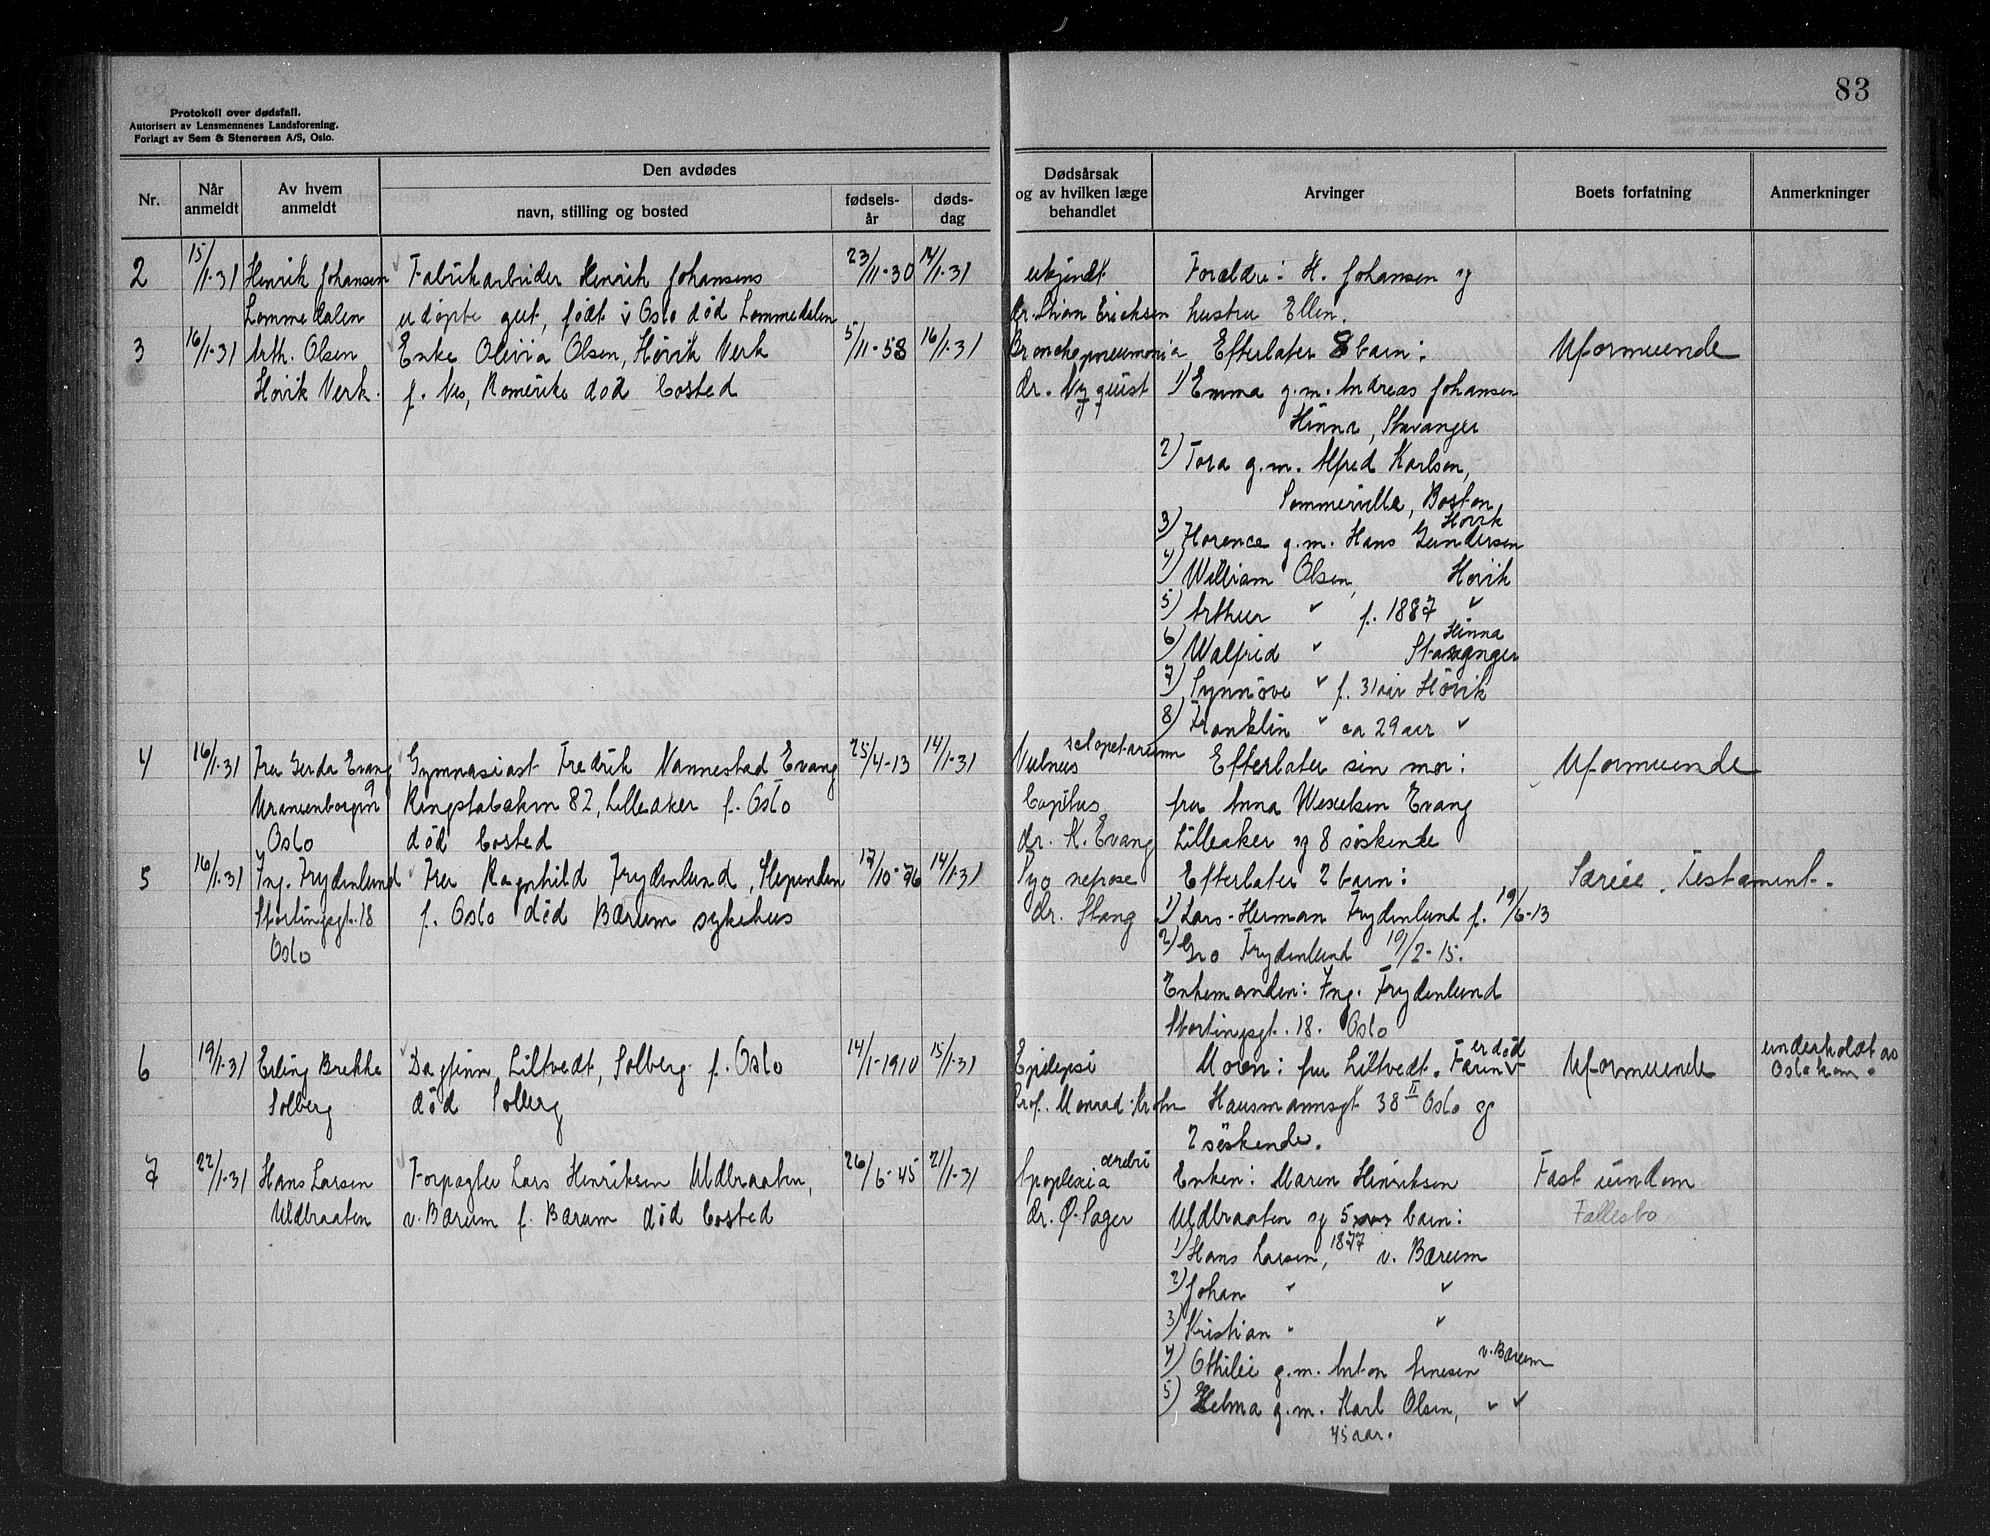 83
Protokoll over dødsfall.
Autorisert av Lensmennenes Landsforening.
Forlagt av Sem & Stenersen A/S, Oslo.
Nr.
Når anmeldt
Av hvem anmeldt
Den avdødes
navn, stilling og bosted
fødsels-år
døds-dag
Dødsårsak og av hvilken læge behandlet
Arvinger
Boets forfatning
Anmerkninger
2 15/1-31 Henrik Johansen Fabrikarbeider Henrik Johansens 23/11-30 14/1-31 ukjendt Forældre: H. Johansen og
Lommedalen udøpte gut, født i Oslo død Lommedalen dr. Ericksen hustru Ellen.
3 16/1-31 Arth. Olsen Enke Olivia Olsen, Høvik Verk 5/11-58 16/1-31 Bronchopneumonia Efterlater 8 barn: Uformuende
Høvik Verk. f. Nes, Romerike død bosted dr. Nyquist 1) Emma g.m. Andreas Johansen
Hinna, Stavanger
2) Tora g.m. Alfred Karlsen,
Sommerville, Boston
Høvik
3) Florence g.m. Hans Gundersen
4) William Olsen, Høvik
5) Arthur " f. 1887 "
Hinna
6) Walfrid " Stavanger
7) Synnøve " f. 31 aar Høvik
8) Franklin " ca 29 aar "
4 16/1-31 Fru Gerda Evang Gymnasiast Fredrik Vannestad Evang 25/4-13 14/1-31 Vulnus sclopetarium Efterlater sin mor: Uformuende
Uranienborgvn 9 Ringstabækvn 82, Lilleaker f. Oslo Capitus fru Anna Wexelsen Evang
Oslo død bosted dr. K. Evang Lilleaker og 8 søskende
5 16/1-31 Ing. Frydenlund Fru Ragnhild Frydenlund, Slependen 17/10-76 14/1-31 Pyo nefrose Efterlater 2 barn: Særeie. Testament.
Stortingsgt. 18 f. Oslo død Bærum sykehus dr. Stang 1) Lars-Herman Frydenlund f. 19/6-13
Oslo 2) Gro Frydenlund 19/2-15.
Enkemanden: Ing. Frydenlund
Stortingsgt. 18. Oslo
6 19/1-31 Erling Brekke Dagfinn Liltvedt, Solberg f. Oslo 14/1-1910 15/1-31 Epilepsi Moren: fru Liltvedt. Faren er død Uformuende underholdt av
Solberg død Solberg Prof. Monrad-Krohn Hausmannsgt 38 II Oslo og Oslo kom.
2 søskende.
7 22/1-31 Hans Larsen Forpagter Lars Henriksen Uldbraaten, 26/6-45 21/1-31 Apoplexia cerebri Enken: Maren Henriksen Fast eiendom
Uldbraaten v. Bærum f. Bærum død bosted dr. Ø. Sager Uldbraaten og 5 barn: Fællesbo
1) Hans Larsen, 1877 v. Bærum
2) Johan " "
3) Kristian " "
4) Othilie g.m. Anton Arnesen v. Bærum
5) Helma g.m. Karl Olsen, " "
45 aar.